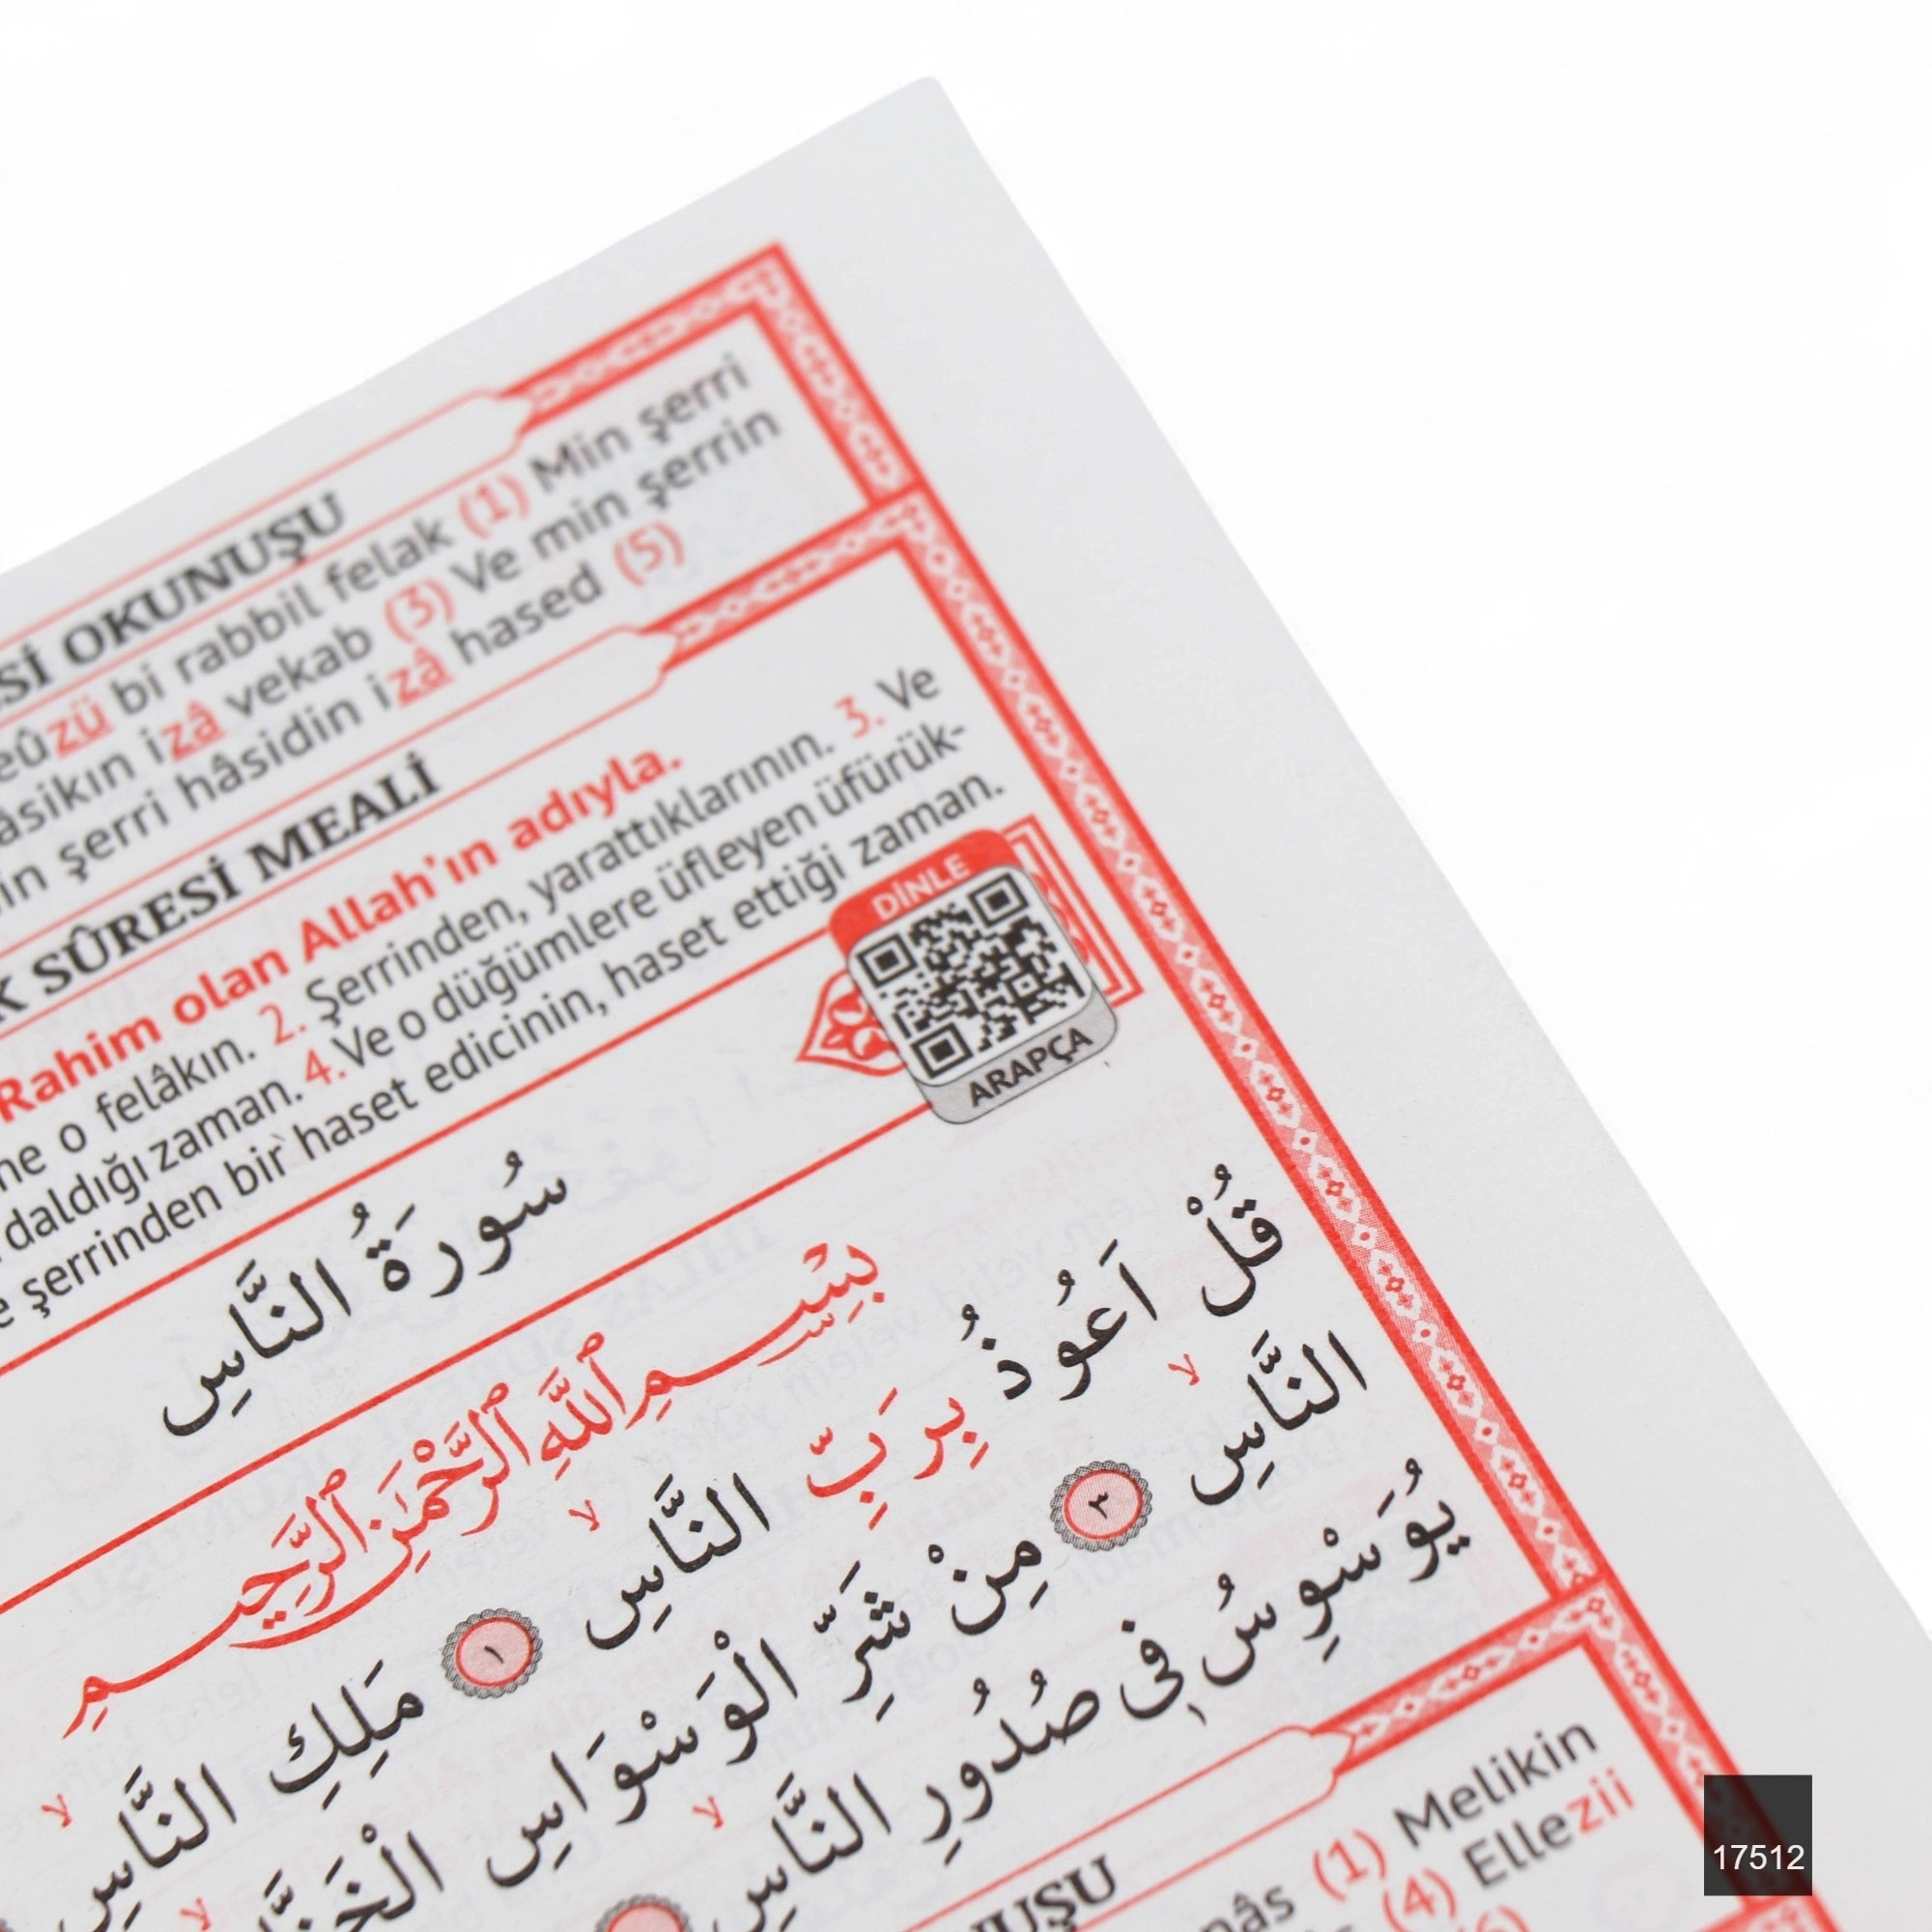 OKUNUŞU
bi rabbil felak (1) Min şerri
izâ vekab (3) Ve min şerrin
şerri hâsidin izâ hased (5)
SÛRESİ MEALİ
Rahim olan Allah'ın adıyla.
o felâkın. 2. Şerrinden, yarattıklarının. 3. Ve
daldığı zaman. 4. Ve o düğümlere üfleyen üfürük-
şerrinden bir haset edicinin, haset ettiği zaman.
DİNLE
ARAPÇA
سُورَةُ النَّاسِ
بِسْمِ اللّٰهِ الرَّحْمٰنِ الرَّحِيمِ
قُلْ اَعُوذُ بِرَبِّ النَّاسِ ١ مَلِكِ النَّاسِ
النَّاسِ ٣ مِنْ شَرِّ الْوَسْوَاسِ
يُوَسْوِسُ فِى صُدُورِ النَّاسِ
(1) Melikin
(4) Ellezii
17512